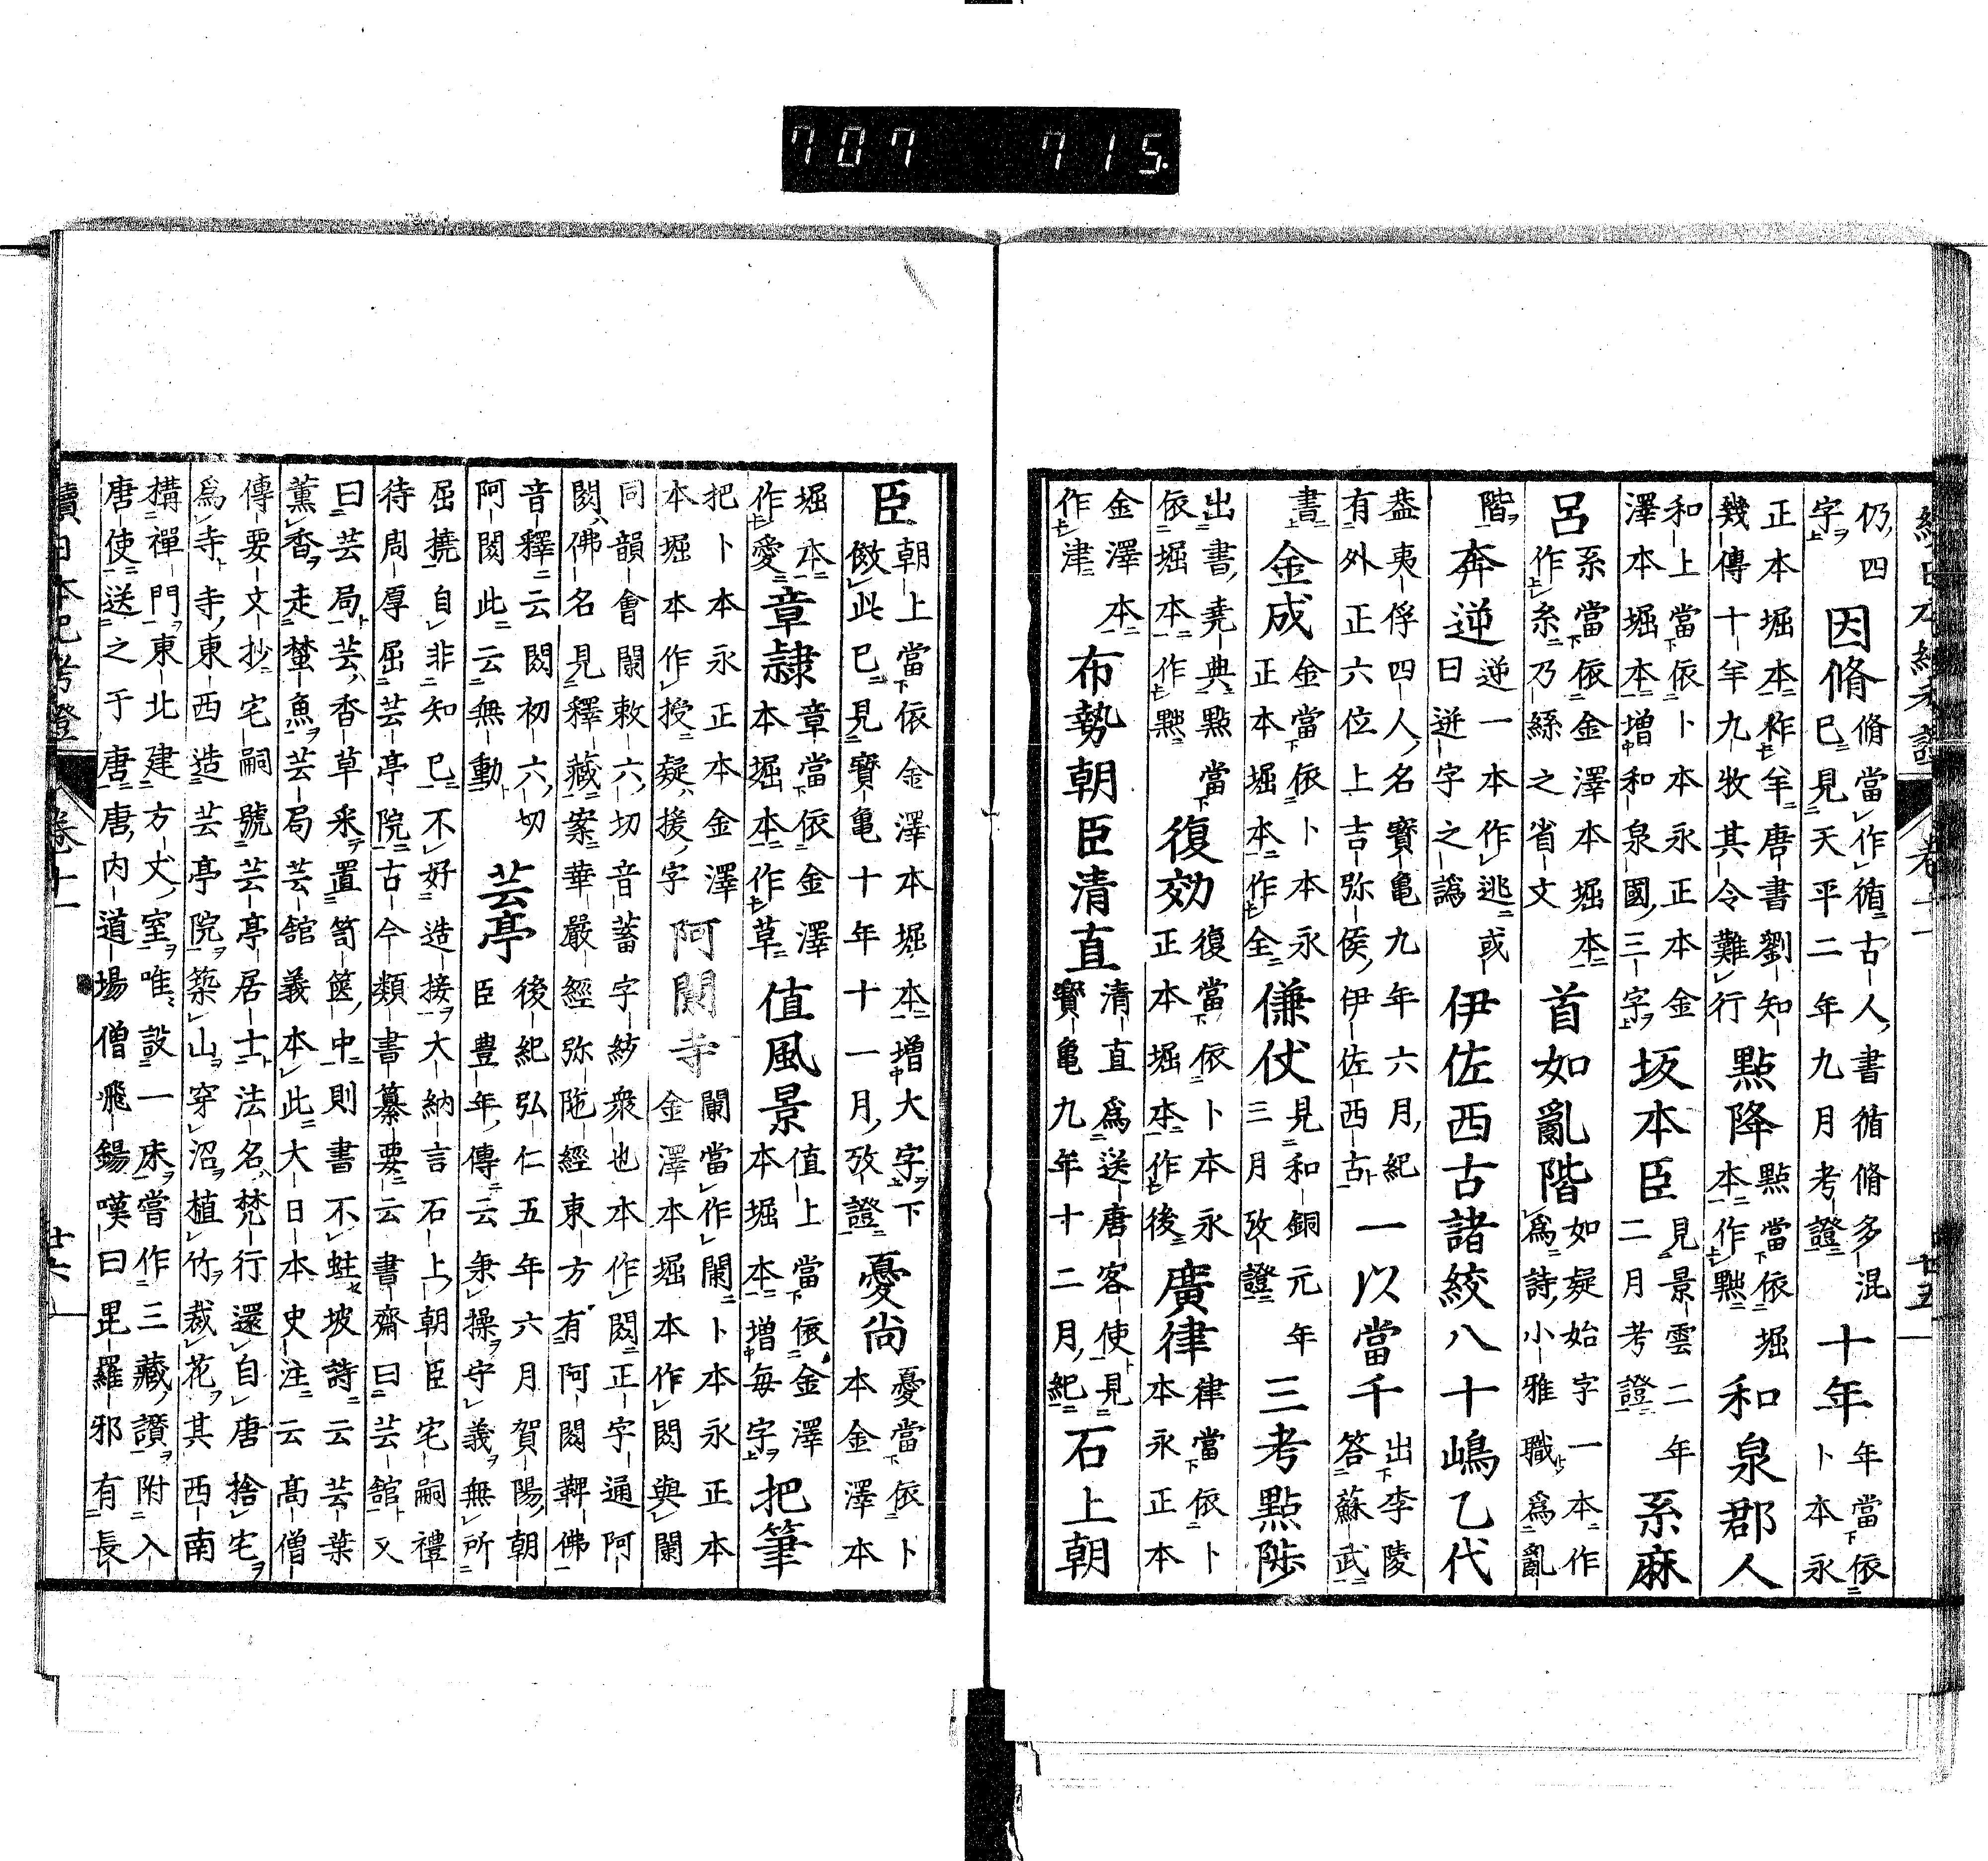 707 715.
續日本紀考證 卷十一 廿五
仍四字 因脩 脩當作循古人書循脩多混已見天平二年九月考證 十年 年當依卜本永
正本堀本作年唐書劉知幾傳十年九牧其令難行 點降 點當依堀本作黜 和泉郡人
和上當依卜本永正本金澤本堀本增和泉國三字 坂本臣 見景雲二年二月考證 系麻
呂 系當依金澤本堀本作糸乃絲之省文 首如亂階 如疑始字一本作爲詩小雅職爲亂
階 奔逆 逆一本作逃或曰迸字之譌 伊佐西古諸絞八十嶋乙代
蓋夷俘四人名寶龜九年六月紀有外正六位上吉弥侯伊佐西古 一以當千 出李陵答蘇武
書 金成 金當依卜本永正本堀本作全 傔仗 見和銅元年三月攷證 三考點陟
出書堯典點當依堀本作黜 復効 復當依卜本永正本堀本作後 廣律 律當依卜本永正本
金澤本作津 布勢朝臣清直 清直爲送唐客使見寶龜九年十二月紀 石上朝
臣 朝上當依金澤本堀本增大字下倣此已見寶龜十年十一月攷證 憂尚 憂當依卜本金澤本
堀本作愛 章隷 章當依金澤本堀本作草 值風景 值上當依金澤本堀本增每字 把筆
把卜本永正本金澤本堀本作授疑援字 阿闍寺 闍當作閦卜本永正本金澤本堀本作閦與闍
同韻會閦敕六切音蓄字紗衆也本作閦正字通阿閦佛名見釋藏案華嚴經弥陁經東方有阿閦鞞佛
音釋云閦初六切阿閦此云無動 芸亭 後紀弘仁五年六月賀陽朝臣豊年傳云秉操守義無所
屈撓自非知己不好造接大納言石上朝臣宅嗣禮待周厚屈芸亭院古今類書纂要云書齋曰芸館又
曰芸局芸香草采置笥篋中則書不蛀坡詩云芸葉薰香走蠹魚芸局芸館義本此大日本史注云高僧
傳要文抄宅嗣號芸亭居士法名梵行還自唐捨宅爲寺寺東西造芸亭院築山穿沼植竹裁花其西南
構禪門東北建方丈室唯設一床嘗作三藏讚附入唐使送之于唐唐內道場僧飛錫嘆曰毘羅邪有長
續日本紀考證 卷十一 廿六